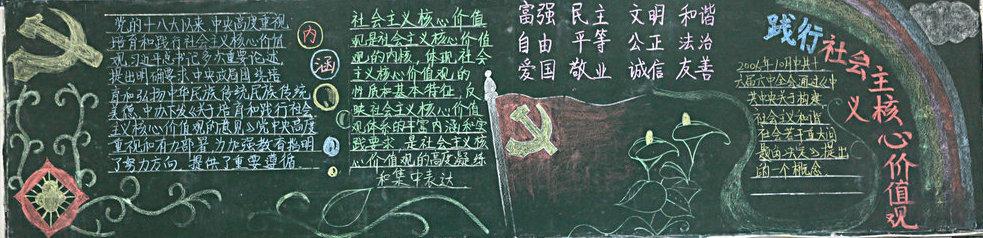 党的十八大以来,中央高度重视
培育和践行社会主义核心价值
观,习近平总书记多次重要论述,
提出明确要求中央政局团头培
育和弘扬中华民族传统民族传统
美德,中办下发《关于培育和践行社会
主义核心价值观的意见》党中央高度
重视和有力部署,为加强教育指明
了努力方向,提供了重要遵循
内
涵
社会主义核心价值
观是社会主义核心价值
观的内核,体现社会
主义核心价值观的
性质和基本特征,反
映社会主义核心价值
观体系的丰富内涵和实
践要求,是社会主义核
心价值观的高度凝练
和集中表达
富强 民主 文明 和谐
自由 平等 公正 法治
爱国 敬业 诚信 友善
践行社会主义核心价值观
2006年10月中共十
六届六中全会通过《中
共中央关于构建
社会主义和谐
社会若干重大问
题的决定》提出
的一个概念.